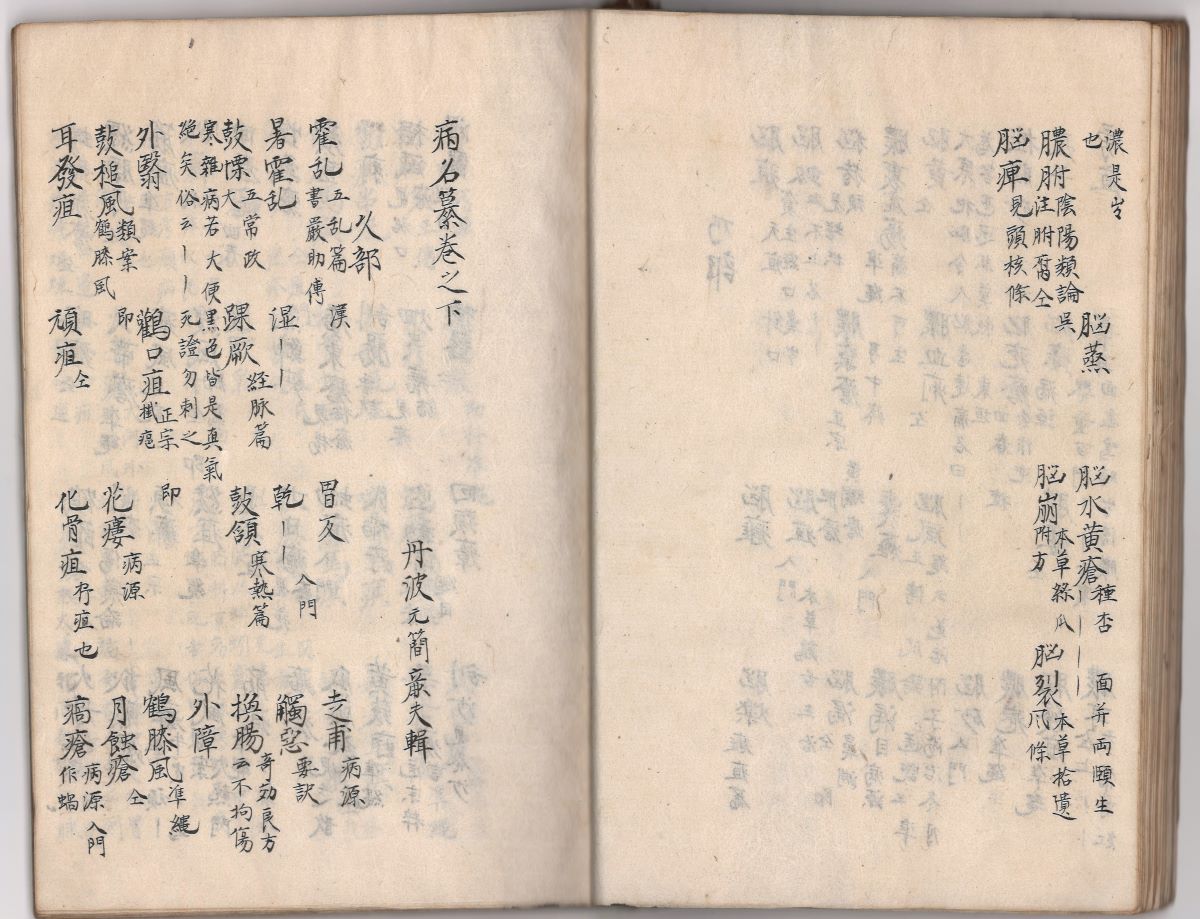 濃是也
膿胕 陰陽類論呉注胕腐仝 脳蒸 脳水黄瘡 種杏 面并両頤生
脳崩 本草絲瓜附方 脳裂 本草拾遺
脳痺 見頭核條
病名纂巻之下
久部 丹波元簡廉夫輯
霍乱 五乱篇 漢書嚴助傳 胃反 走甫 病源
暑霍乱 湿〡〡 乾〡〡 入門 觸惡 要訣
鼓慄 五常政大 踝厥 経脉篇 鼓頷 寒熱篇 換腸 奇効良方云不拘傷
寒雜病若大便黒色皆是真氣
絶矣俗云〡〡死證勿刺之 即外障
外翳 鸛口疽 正宗 鶴膝風 準縄
鼓槌風 類案鶴膝風即 花瘻 病源 月蝕瘡 仝
耳發疽 頑疽 仝 化骨疽 疛疽也 瘑瘡 病源入門作蝸